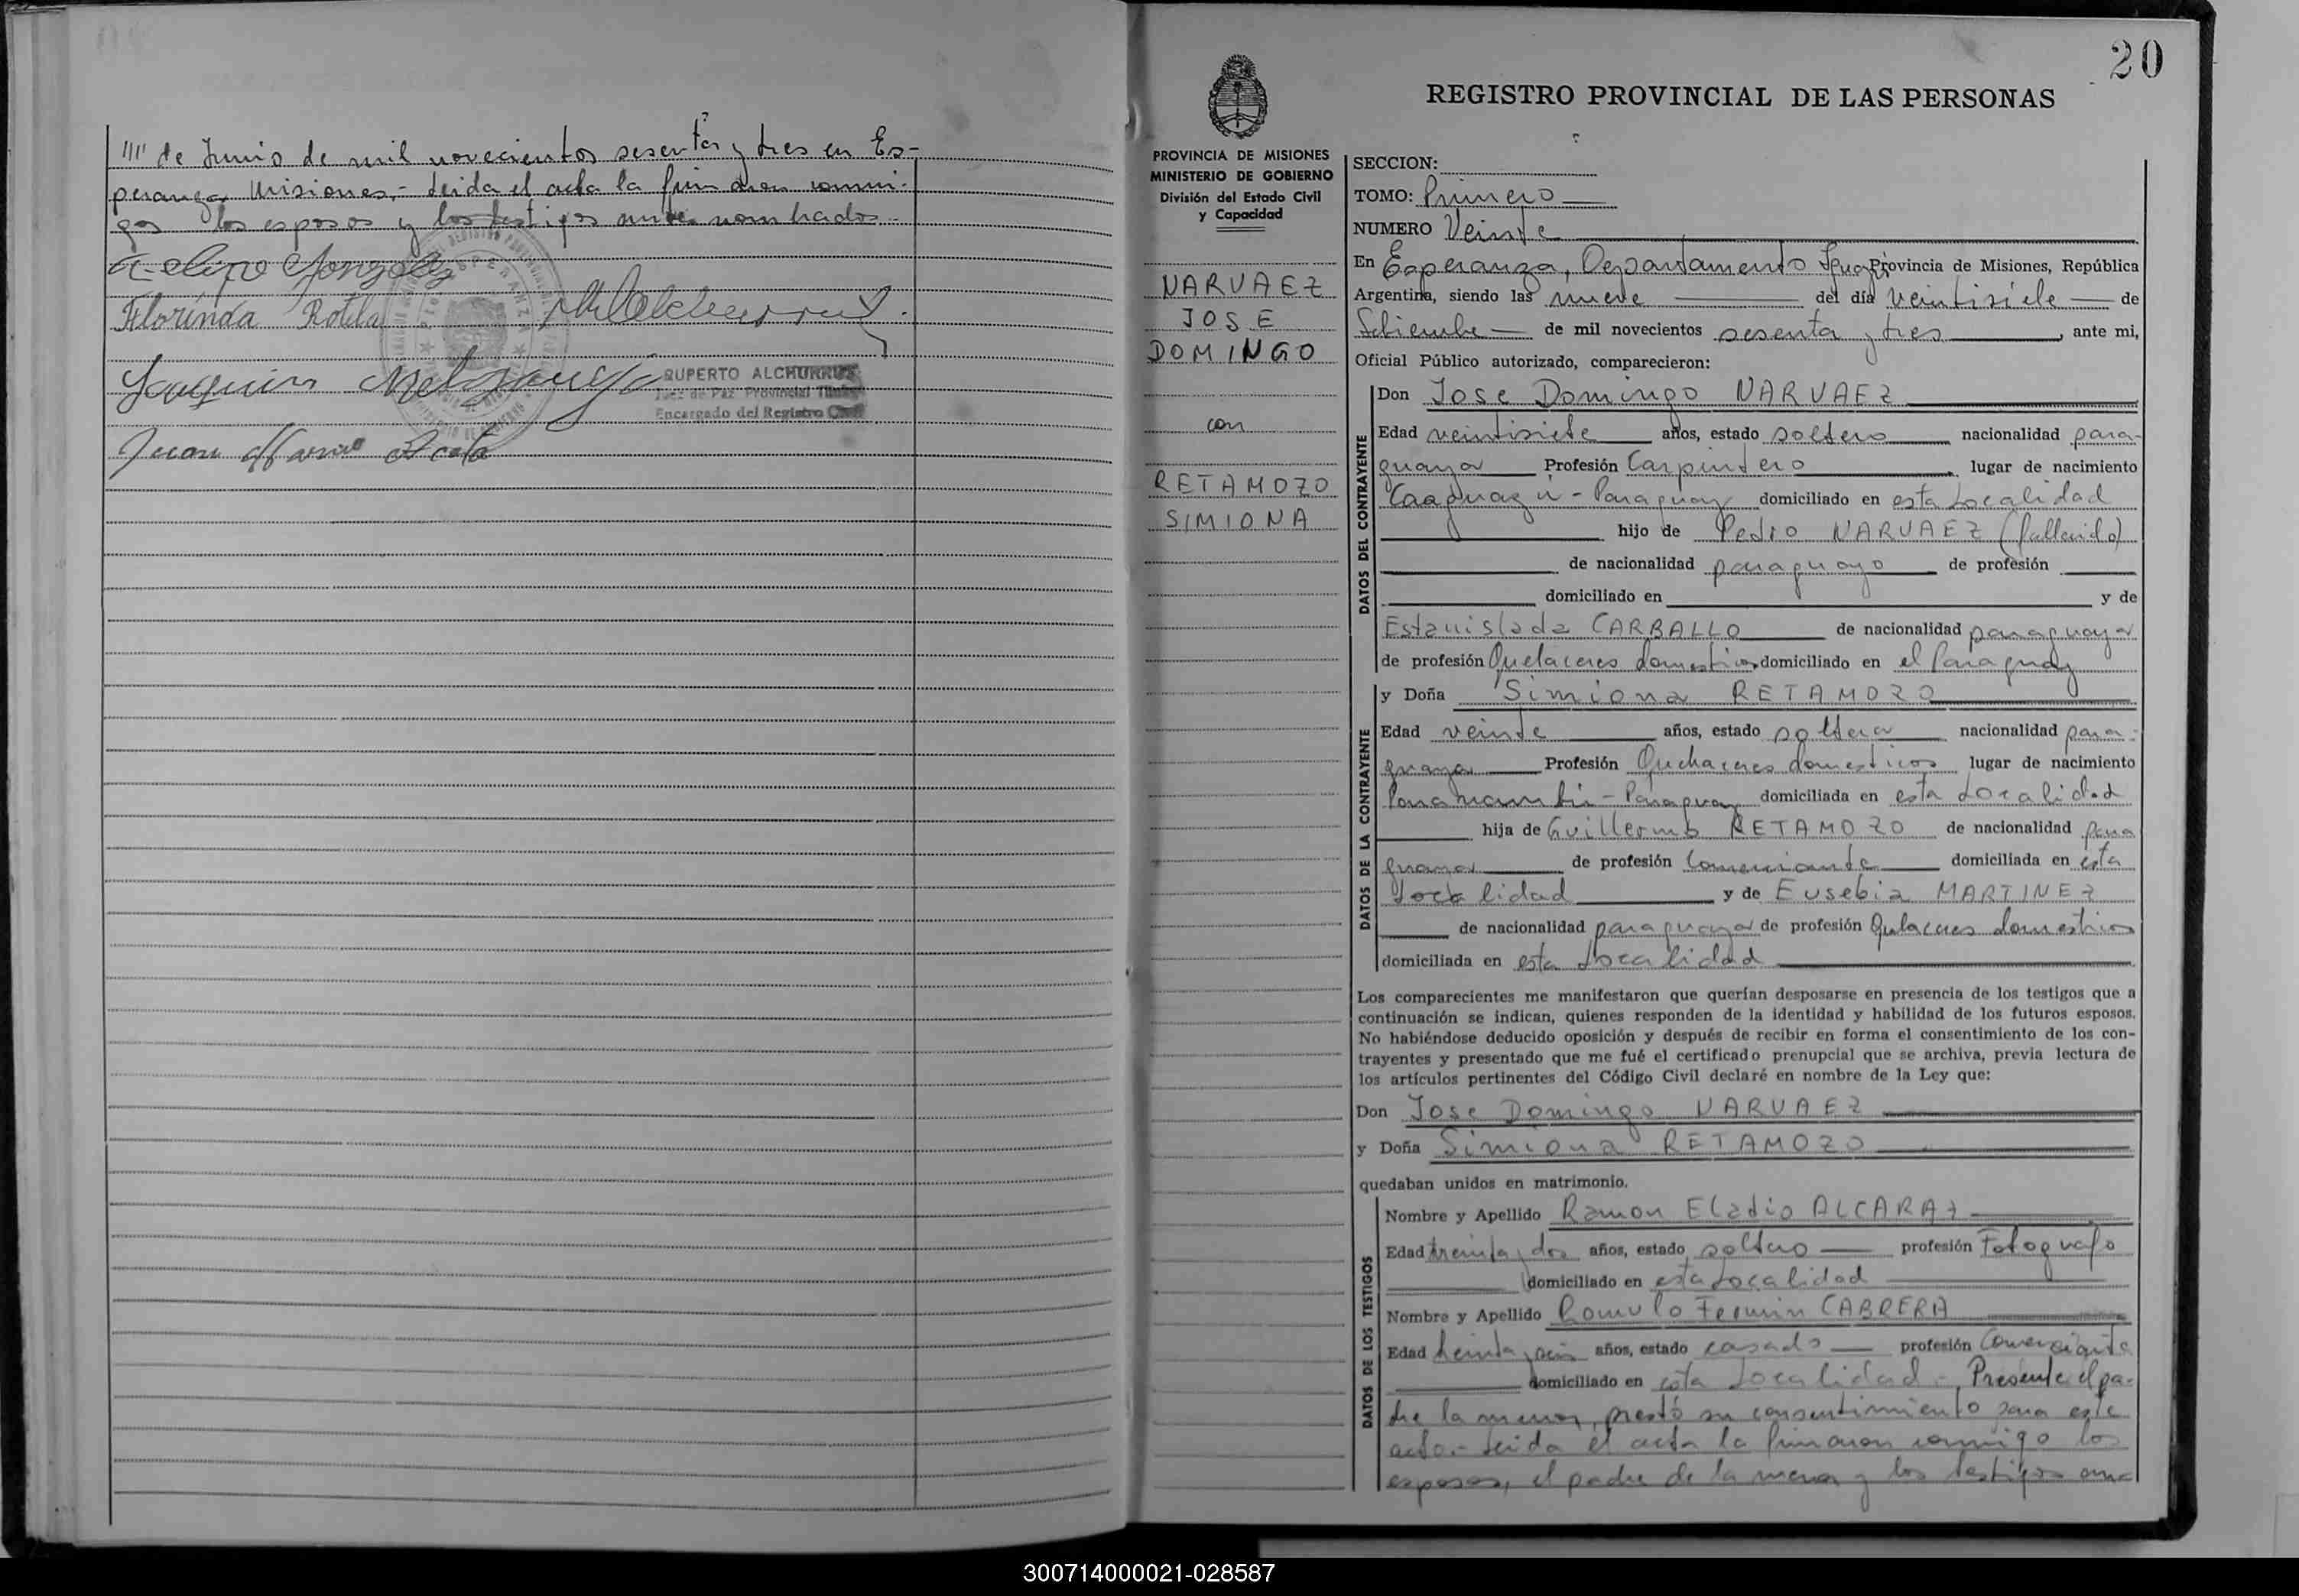 "" de Junio de mil novecientos sesenta y tres en Es-
peranza Misiones.- Leida el acta la firmaron conmi-
go los esposos y los testigos antes nombrados.-
González
Florinda Rotela
RUPERTO ALCHURRUT
Juez de Paz Provincial Titular
Encargado del Registro Civil
Joaquin
Juan
20
REGISTRO PROVINCIAL DE LAS PERSONAS
PROVINCIA DE MISIONES
MINISTERIO DE GOBIERNO
División del Estado Civil
y Capacidad
NARVAEZ
JOSE
DOMINGO
con
RETAMOZO
SIMIONA
SECCION:
TOMO: Primero
NUMERO Veinte
En Esperanza, Departamento Iguazú Provincia de Misiones, República
Argentina, siendo las nueve del día veintisiete de
Setiembre de mil novecientos sesenta y tres, ante mi,
Oficial Público autorizado, comparecieron:
DATOS DEL CONTRAYENTE
Don Jose Domingo NARVAEZ
Edad veintisiete años, estado soltero nacionalidad para-
guaya Profesión Carpintero lugar de nacimiento
Caaguazú - Paraguay domiciliado en esta Localidad
hijo de Pedro NARVAEZ (fallecido)
de nacionalidad paraguayo de profesión
domiciliado en y de
Estanislada CARBALLO de nacionalidad paraguaya
de profesión Quehaceres domesticos domiciliado en el Paraguay
DATOS DE LA CONTRAYENTE
y Doña Simiona RETAMOZO
Edad veinte años, estado soltera nacionalidad para-
guaya Profesión Quehaceres domesticos lugar de nacimiento
- Paraguay domiciliada en esta Localidad
hija de Guillermo RETAMOZO de nacionalidad para
guaya de profesión Comerciante domiciliada en esta
Localidad y de Eusebia MARTINEZ
de nacionalidad paraguaya de profesión Quehaceres domesticos
domiciliada en esta Localidad
Los comparecientes me manifestaron que querían desposarse en presencia de los testigos que a
continuación se indican, quienes responden de la identidad y habilidad de los futuros esposos.
No habiéndose deducido oposición y después de recibir en forma el consentimiento de los con-
trayentes y presentado que me fué el certificado prenupcial que se archiva, previa lectura de
los artículos pertinentes del Código Civil declaré en nombre de la Ley que:
Don Jose Domingo NARVAEZ
y Doña Simiona RETAMOZO
quedaban unidos en matrimonio.
DATOS DE LOS TESTIGOS
Nombre y Apellido Ramon Eladio ALCARAZ
Edad treinta y dos años, estado soltero profesión Fotografo
domiciliado en esta Localidad
Nombre y Apellido Romulo Fermin CABRERA
Edad treinta y seis años, estado casado profesión Comerciante
domiciliado en esta Localidad - Presente el pa-
dre la menor, prestó su consentimiento para este
acto.- Leida el acta la firmaron conmigo los
esposos, el padre de la menor y los testigos an-
300714000021-028587